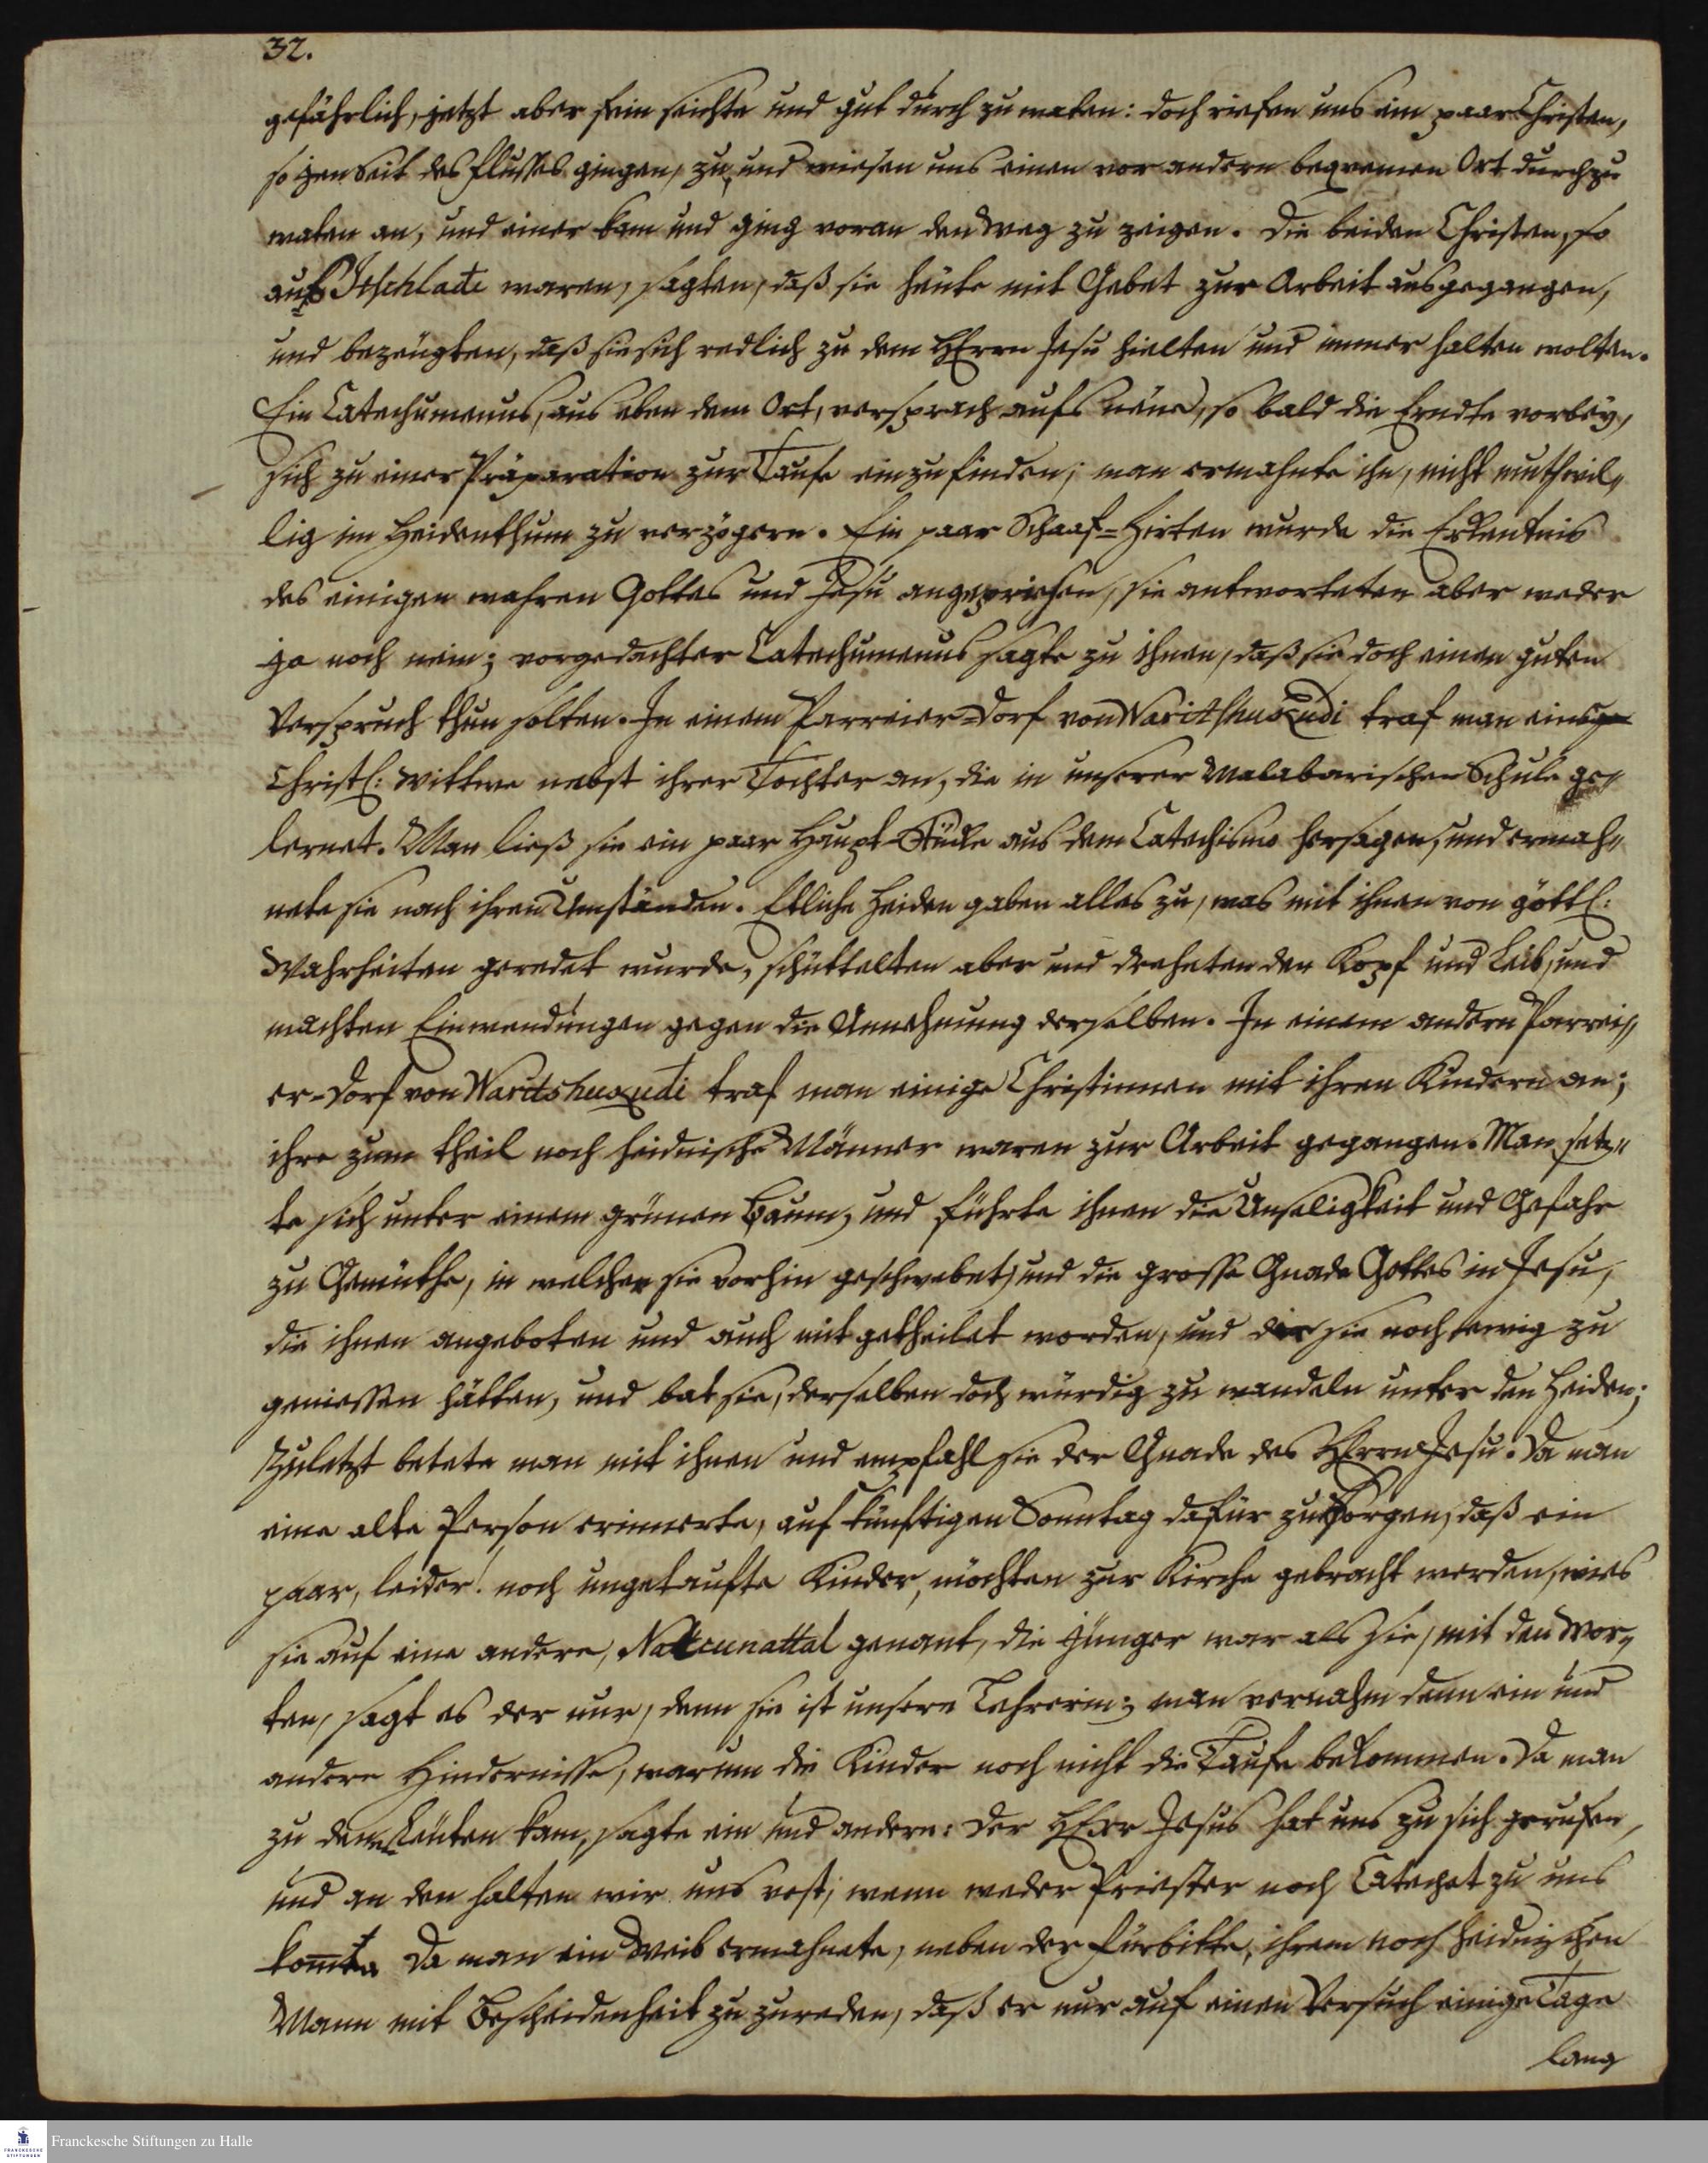 32.
gefährlich, jetzt aber sein seichte und gut durch zu waten: doch riefen uns ein paar Christen,
so jenseit des Flusses gingen, zu, und wiesen uns einen vor andern beqvemen Ort durchzu
waten an, und einer kam und ging voran den Weg zu zeigen. Die beiden Christen, so
auf Itschladi waren, sagten, daß sie heute mit Gebet zur Arbeit ausgegangen,
und bezeugten, daß sie sich redlich zu dem HErrn Jesu hielten und immer halten wolten.
Ein Catechumenus, aus eben dem Ort, versprach aufs neue, so bald die Erndte vorbey,
sich zu einer Präparation zur Taufe einzufinden; man ermahnte ihn, nicht muthwil„
lig im Heidenthum zu verzögern. Ein paar Schaaf-Hirten wurde die Erkentnis
des einigen wahren Gottes und Jesu angepriesen, sie antworteten aber weder
ja noch nein; vorgedachter Catechumenus sagte zu ihnen, daß sie doch einen guten
Verspruch thun solten. In einem Parreier-Dorf von Waritshukudi traf man eine
Christl: Wittwe nebst ihrer Tochter an, die in unserer Malabarischen Schule ge„
lernet. Man ließ sie ein paar Haupt-Stücke aus dem Catechismo hersagen, und ermah„
nete sie nach ihren Umständen. Etliche Heiden gaben alles zu, was mit ihnen von göttl:
Wahrheiten geredet wurde, schüttelten aber und dreheten den Kopf und Leib, und
machten Einwendungen gegen die Annehmung derselben. In einem andern Parrei„
er-Dorf von Waritshukudi traf man einige Christinnen mit ihren Kindern an;
ihre zum theil noch heidnische Männer waren zur Arbeit gegangen. Man setz„
te sich unter einem grünen Baum, und führte ihnen die Unseligkeit und Gefahr
zu Gemüthe, in welcher sie vorhin geschwebet, und die grosse Gnade Gottes in Jesu,
die ihnen angeboten und auch mitgetheilet worden, und die sie noch ewig zu
geniessen hätten, und bat sie, derselben doch würdig zu wandeln unter den Heiden;
zuletzt betete man mit ihnen und empfahl sie der Gnade des HErrn Jesu. Da man
eine alte Person erinnerte, auf künftigen Sonntag dafür zu sorgen, daß ein
paar, leider! noch ungetaufte Kinder, möchten zur Kirche gebracht werden, wies
sie auf eine andere, Natcunattal genant, die jünger war als sie, mit den Wor„
ten, sagt es der nur, denn sie ist unsere Lehrerin; man vernahm denn ein und
andere Hindernisse, warum die Kinder noch nicht die Taufe bekommen. Da man
zu den Leuten kam, sagte ein und andere: Der HErr Jesus hat uns zu sich gerufen,
und an den halten wir uns vest, wenn weder Priester noch Catechet zu uns
kom̄t. Da man ein Weib ermahnete, neben der Fürbitte, ihrem noch heidnischen
Mann mit Bescheidenheit zu zureden, daß er nur auf einen Versuch einige Tage
lang
Franckesche Stiftungen zu Halle